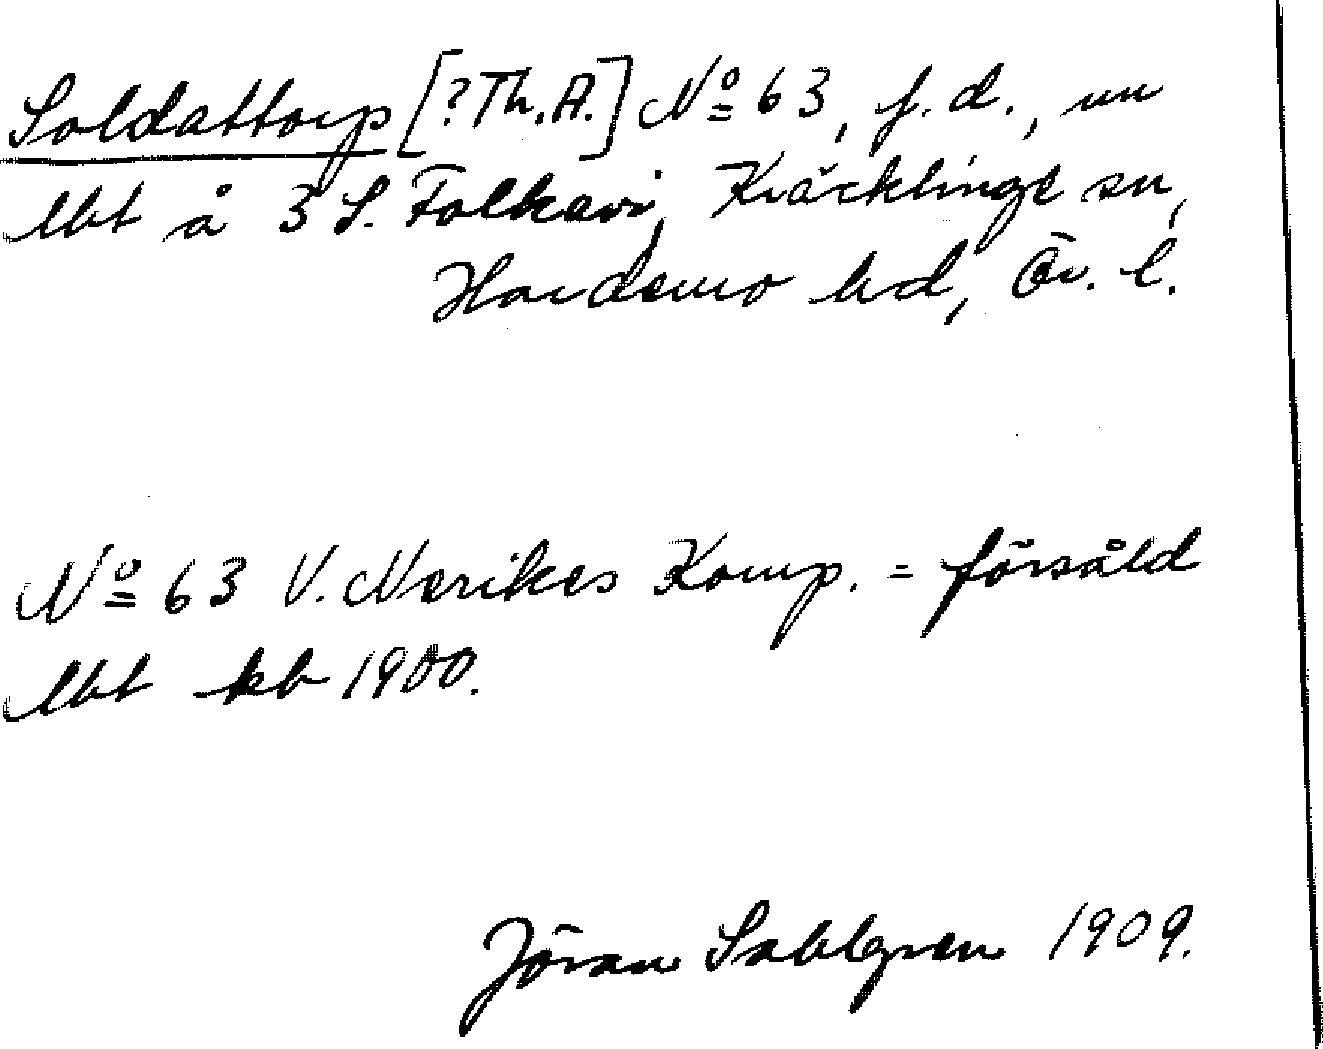 Soldattorp [?Th.A.] Nº 63, f.d., nu
lbt å 3 S. Folkavi, Kräcklinge sn,
Hardemo hd, Ör. l.
Nº 63 V. Nerikes Komp. = försåld
lbt kb 1900.
Jöran Sahlgren 1909.